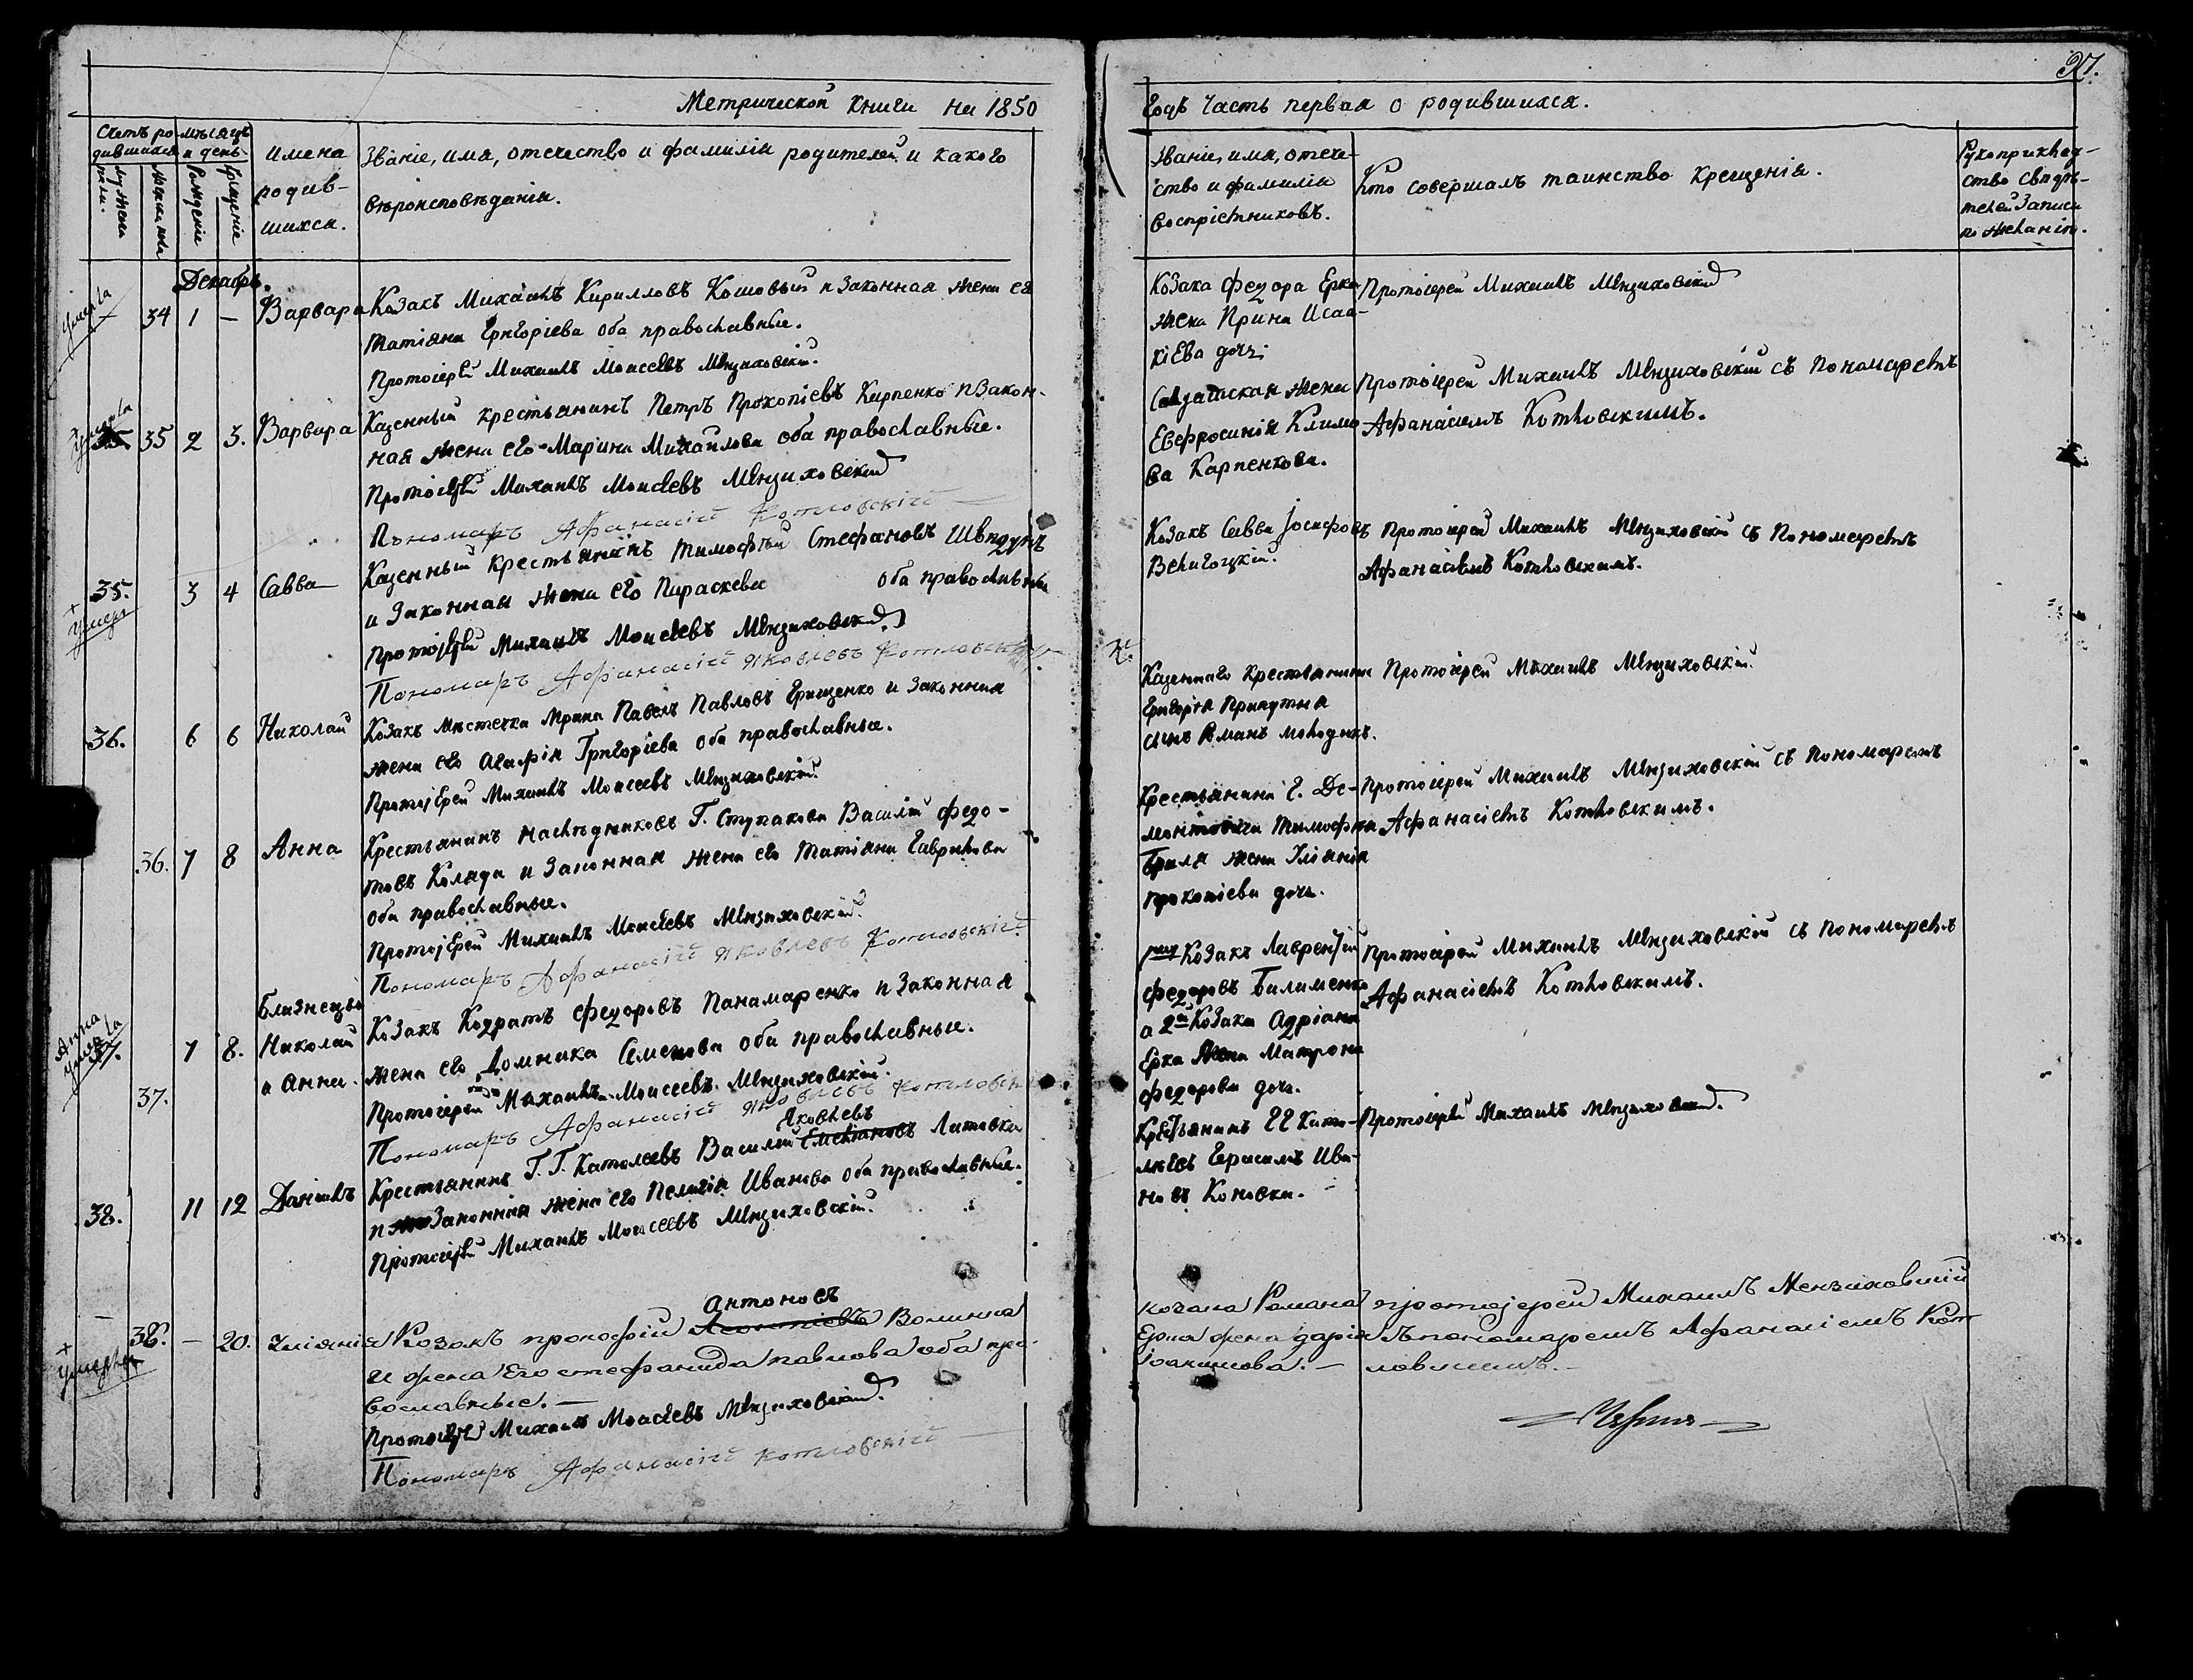 37.
Метрической книги на 1850
Годъ Часть первая о родившихся.
Счетъ ро-
дившихся
мѣсяцъ
и день.
Имена
родив-
шихся.
Званіе, имя, отечество и фамилія родителей, и какого
вѣроисповѣданія.
Званіе, имя, отече-
ство и фамилія
воспріемниковъ.
Кто совершалъ таинство крещенія.
Рукоприклад-
ство свидѣ-
телей записи
по желанію.
Рожденіе
Крещеніе
Декабрь.
умерла
34 1 - Варвара
Козакъ Михаилъ Кирилловъ Кошовый и законная жена его
Татіяна Григоріева оба православные.
Протоіерей Михаилъ Моисеевъ Мензиховскій.
Козака Федора Ерка
жена Ирина Исаа-
кіева дочь
Протоіерей Михаилъ Мензиховскій
умерла
35 2 3. Варвара
Казенный крестьянинъ Петръ Прокопіевъ Карпенко и закон-
ная жена его Марина Михайлова оба православные.
Протоіерей Михаилъ Моисеевъ Мензиховскій
Пономарь Афанасій Котловскій
Солдатская жена
Евфросинія Климо-
ва Карпенкова.
Протоіерей Михаилъ Мензиховскій съ Пономаремъ
Афанасіемъ Котловскимъ.
35. 3 4 Савва
умеръ
Казенный крестьянинъ Тимофей Стефановъ
и законная жена его Параскева оба православны
Протоіерей Михаилъ Моисеевъ Мензиховскій
Пономарь Афанасій Яковлевъ Котловскій
Козакъ Савва Іосифовъ
Величоцкій.
Протоіерей Михаилъ Мензиховскій съ Пономаремъ
Афанасіемъ Котловскимъ.
36. 6 6 Николай
Козакъ местечка Мрина Павелъ Павловъ Грищенко и законная
жена его Агафія Григоріева оба православные.
Протоіерей Михаилъ Моисеевъ Мензиховскій
Казеннаго крестьянина
Григорія
сынъ Романъ
Протоіерей Михаилъ Мензиховскій.
36. 7 8 Анна
Крестьянинъ наследниковъ Г. Ступакова Василій Федо-
товъ Коляда и законная жена его Татіяна Гаврилова
оба православные.
Протоіерей Михаилъ Моисеевъ Мензиховскій
Пономарь Афанасій Яковлевъ Котловскій
Крестьянина Г. Де-
Тимофея
жена Уліянія
Прокопіева дочь.
Протоіерей Михаилъ Мензиховскій съ Пономаремъ
Афанасіемъ Котловскимъ.
Анна
умерла
37. 7 8.
37.
Близнецы
Николай
и Анна.
Козакъ Кодратъ Федоровъ Панамаренко и законная
жена его Домника Семенова оба православные.
Протоіерей Михаилъ Моисеевъ Мензиховскій.
Пономарь Афанасій Яковлевъ Котловскій
Козакъ Лаврентій
Федоровъ Билименко
а 2й Козака Адріана
Ерка жена Матрона
Федорова дочь.
Протоіерей Михаилъ Мензиховскій съ Пономаремъ
Афанасіемъ Котловскимъ.
38. 11 12 Даніилъ
Яковлевъ
Крестьянинъ Г. Г. Католеевъ Василій Емеліановъ Литовка
и законная жена его Пелагія Иванова оба православные.
Протоіерей Михаилъ Моисеевъ Мензиховскій.
Крестьянинъ ГГ Като-
леевъ Герасимъ Ива-
новъ Коновка.
Протоіерей Михаилъ Мензиховскій.
умерла
38. - 20. Уліянія
Антоновъ
Козакъ Прокофій Леонтіевъ Волинка
и жена его Стефанида Павлова оба пра-
вославные.
Протоіерей Михаилъ Моисеевъ Мензиховскій.
Пономарь Афанасій Котловскій
козака Романа
Ерка жена Дарія
Іоакимова.
протоіерей Михаилъ Мензиховскій
съ пономаремъ Афанасіемъ Кот
ловскимъ.